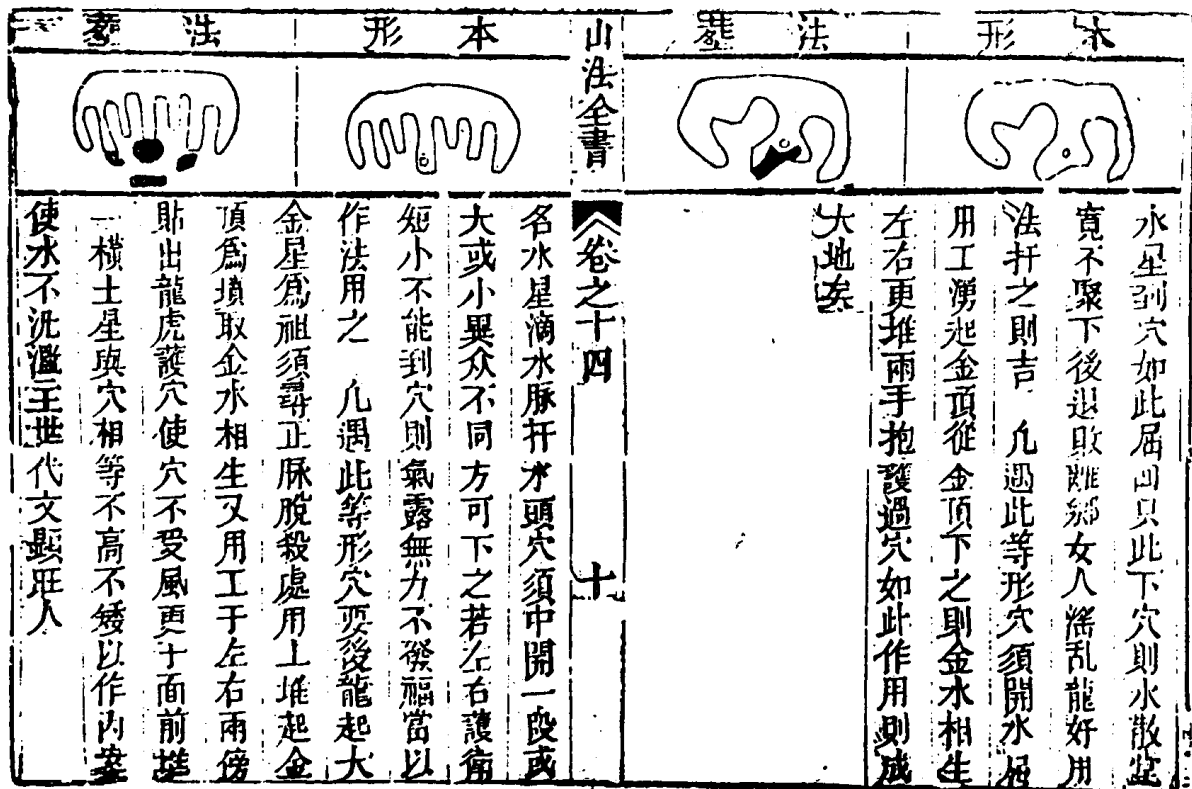 本形
法葬
水星到穴如此屈曲只此下穴則水散堂
寬不聚下後退敗離鄉女人滛乱龍好用
法扞之則吉 凢遇此等形穴須開水
用工湧起金頂從金頂下之則金水相生
左右更堆兩手抱護過穴如此作用則成
大地矣
山法全書
卷之十四
十
本形
法葬
名水星滴水脉扞水頭穴須中開一段或
大或小異众不同方可下之若左右護衛
短小不能到穴則氣露無力不發福當以
作法用之 凢遇此等形穴要後龍起大
金星爲祖須尋正脉脫殺處用土堆起金
頂爲墳取金水相生又用工于左右兩傍
貼出龍虎護穴使穴不受風更于面前堆
一橫土星與穴相等不高不矮以作內案
使水不汎濫主世代文顯旺人